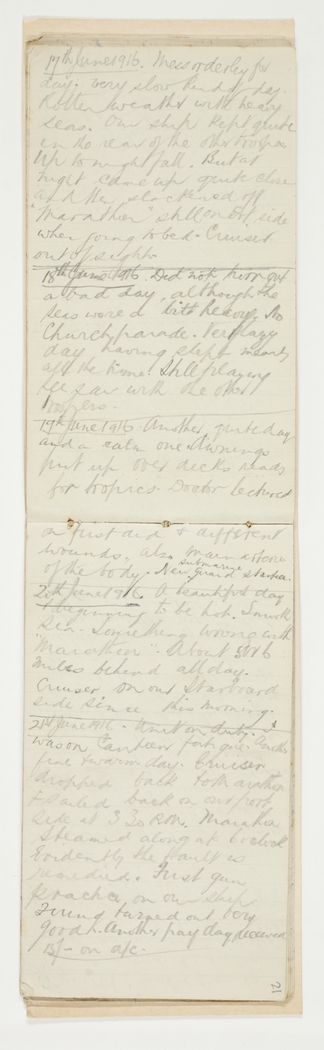 17th June 1916. Mess orderly for
day. Very slow kind of day.
Rotten weather with heavy
seas. Our ship kept quite
in the rear of the other troopers
up to nightfall. But at
night came up quite close
and then slackened off
"Marathon" still on our side
when going to bed. Cruiser
out of sight.
18th June 1916. Did not turn out
a bad day, although the
seas were a bit heavy. No
Church parade. Very lazy
day having slept nearly
all the time. Still playing
see saw with the other
troopers.
19th June 1916. Another quite day
and a calm one. Awnings
put up over decks ready
for tropics. Doctor lectured
on first aid & different
wounds. Also main arteries
of the body. New submarine guard started.
20th June 1916. A beautiful day
beginning to be hot. Smooth
sea. Something wrong with
"Marathon". About 5 or 6
miles behind all day.
Cruiser on our Starboard
side since this morning.
21st June 1916. Unit on duty. I
was on Canteen fatigue. Another
fine & warm day. Cruiser
dropped back to Marathon
& sailed back on our port
side at 3.30 P.M. Marathon
steamed along at 6 o'clock
Evidently the fault is
remedied. First gun
practice, on our ship
Firing turned out very
good. Another pay day received
15/- on a/c.
21